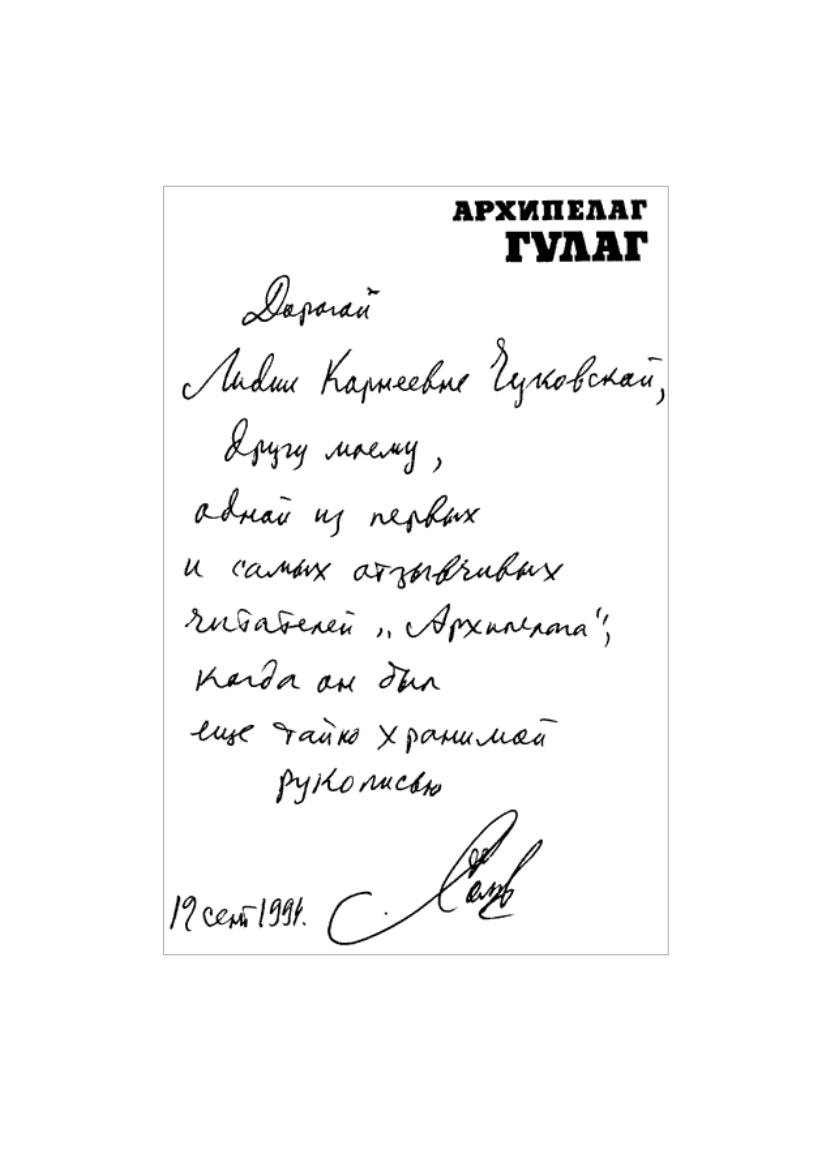 АРХИПЕЛАГ
ГУЛАГ
Дорогой
Лидии Корнеевне Чуковской,
другу моему,
одной из первых
и самых отзывчивых
читателей „Архипелага“,
когда он был
еще тайно хранимой
рукописью
19 сент 1994.